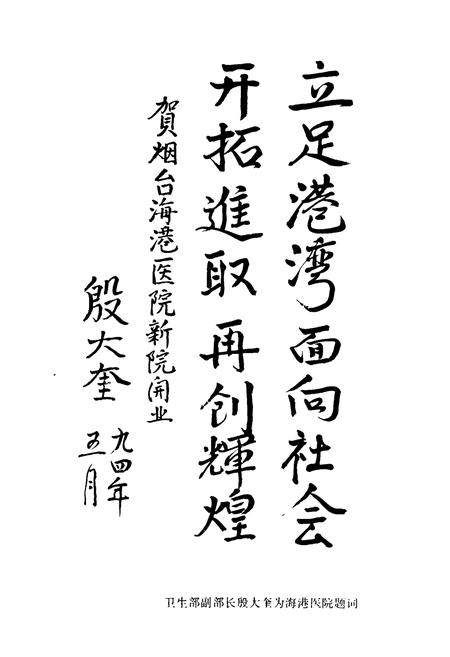 立足港湾面向社会
开拓進取再创輝煌
賀烟台海港医院新院開业
殷大奎
九四年
五月
卫生部副部长殷大奎为海港医院题词